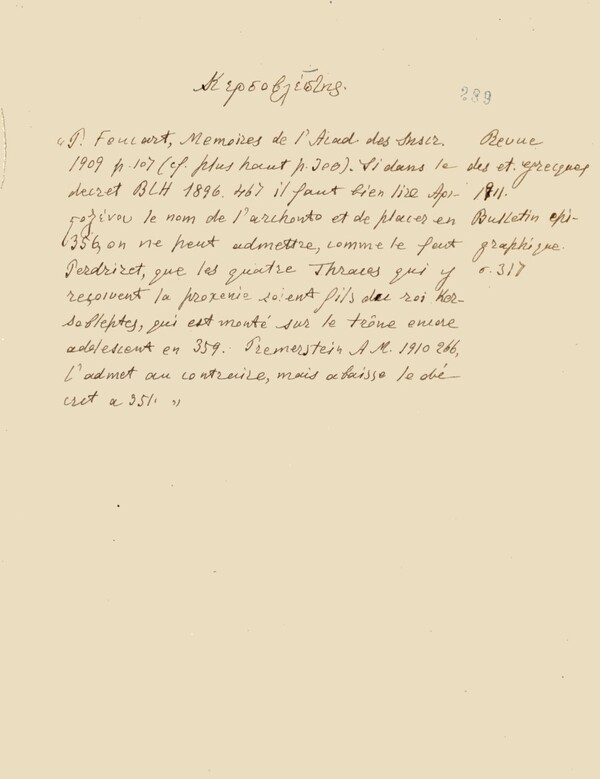 Κερσοβλέπτης.
239
„P. Foucart, Memoires de l'Acad. des Inscr.
1909 p. 107 (cf. plus haut p. 300). Si dans le
decret BLH 1896. 467 il faut bien lire Αρι-
στοξένου le nom de l'archonte et de placer en
356, on ne peut admettre, comme le faut
Perdrizet, que les quatre Thraces qui y
reçoivent la proxenie soient fils du roi Ker-
sobleptes, qui est monté sur le trône encore
adolescent en 359. Premerstein A.M. 1910 266,
l'admet au contraire, mais abaisse le dé-
cret a 351. "
Revue
des et. grecques
1911.
Bulletin epi-
graphique.
p. 317